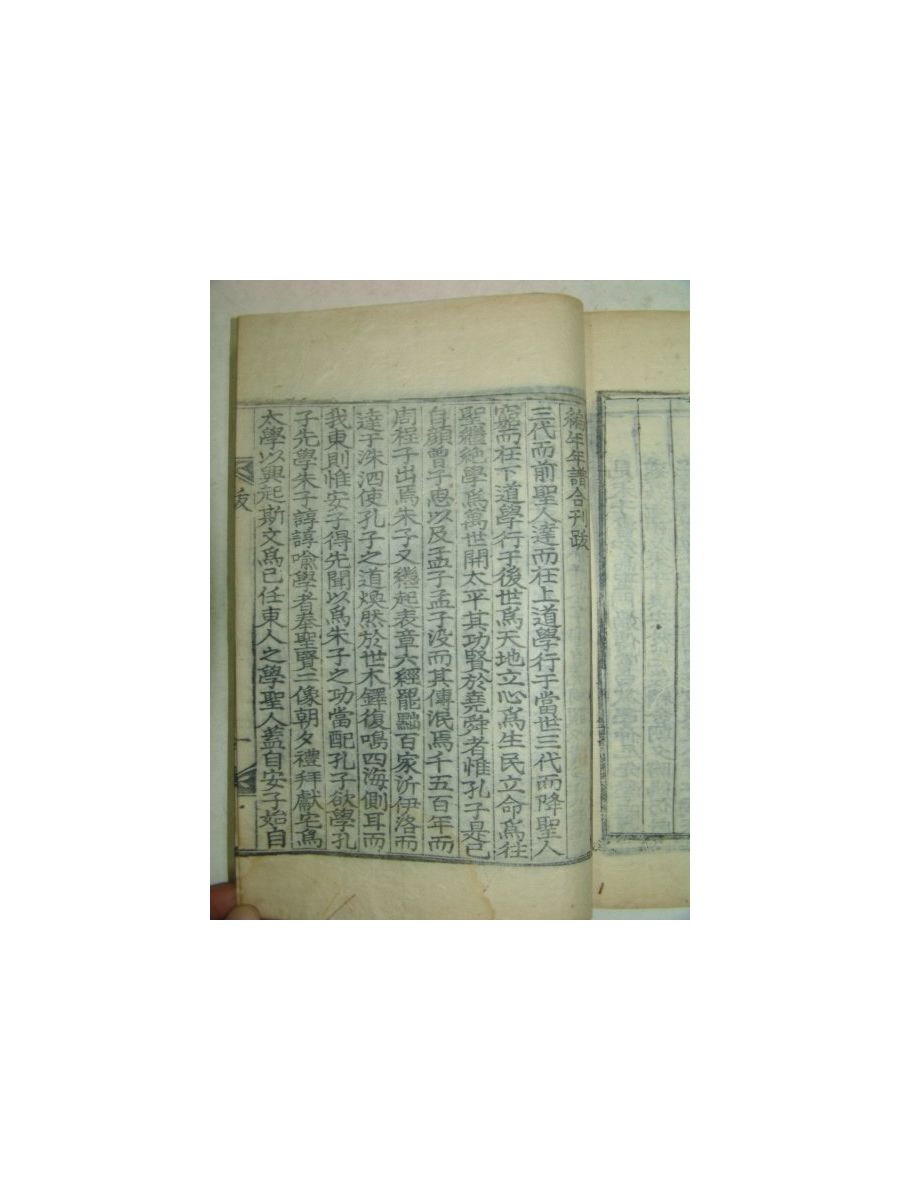 編年年譜合刊跋
三代而前聖人達而在上道學行于當世三代而降聖人
窮而在下道學行于後世爲天地立心爲生民立命爲往
聖繼絶學爲萬世開太平其功賢於堯舜者惟孔子是已
自顔曾子思以及孟子孟子沒而其傳泯焉千五百年而
周程子出焉朱子又繼起表章六經罷黜百家沂伊洛而
達于洙泗使孔子之道煥然於世木鐸復鳴四海側耳而
我東則惟安子得先聞以爲朱子之功當配孔子欲學孔
子先學朱子諄諄喩學者奉聖賢二像朝夕禮拜獻宅爲
太學以興起斯文爲己任東人之學聖人蓋自安子始自
跋
一